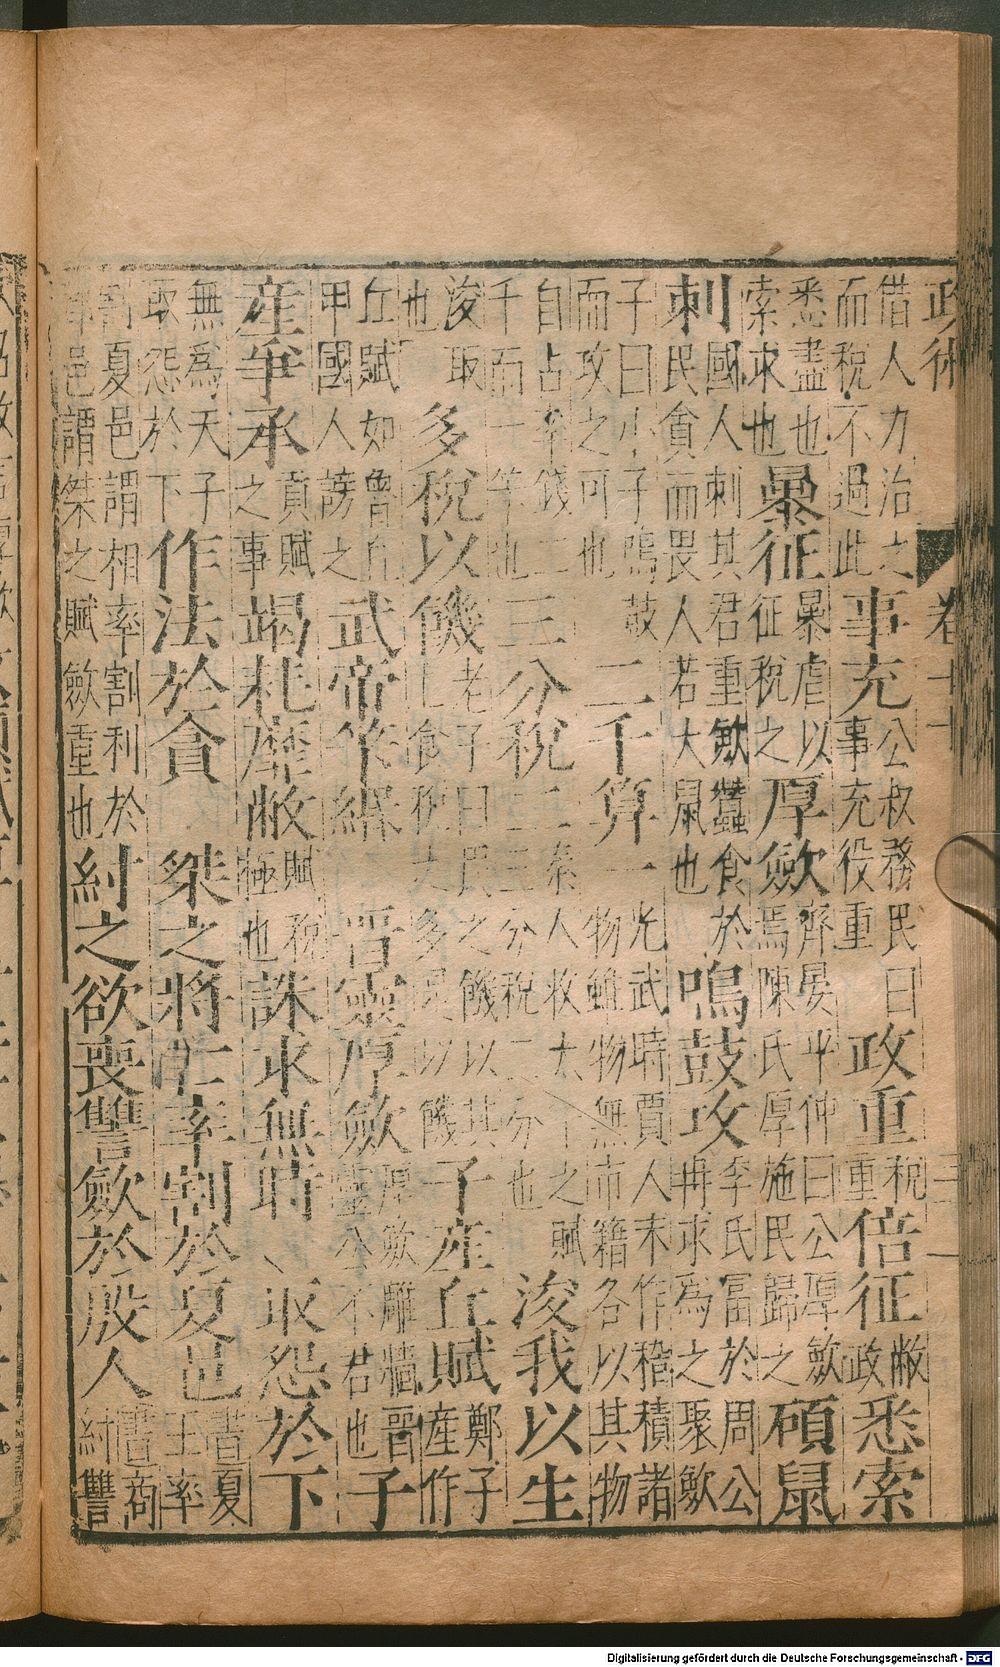 政術 卷十
借人力治之
而稅不過此
事充
公叔務民曰
事充役重
政重
稅
重
倍征
敝
政
悉索
悉盡也
索求也
暴征
暴虐以
征稅之
厚斂
齊晏平仲曰公厚斂
焉陳氏厚施民歸之
碩鼠
刺
國人刺其君重斂蠶食於
民貪而畏人若大鼠也
鳴鼓攻
季氏富於周公
冉求為之聚斂
子曰小子鳴鼓
而攻之可也
二千算一
光武時賈人末作稽積諸
物雖物無市籍各以其物
自占率錢二
千而一算也
三分稅二
秦人收太之賦
三分稅二分也
浚我以生
浚取
也
多稅以饑
老子曰民之饑以其
上食稅之多是以饑
子產丘賦
鄭子
產作
丘賦如魯丘
甲國人謗之
武帝筭緡
晉靈厚斂
厚斂雕牆晉
靈公不君也
子
產爭承
貢賦
之事
竭耗獘敝
賦稅
極也
誅求無時
取怨於下
無為天子
取怨於下
作法於貪
桀之將亡率割於夏邑
書夏
王率
割夏邑謂相率割利於
都邑謂桀之賦斂重也
紂之欲喪讐斂於殷人
書商
紂讐
Digitalisierung gefördert durch die Deutsche Forschungsgemeinschaft - DFG